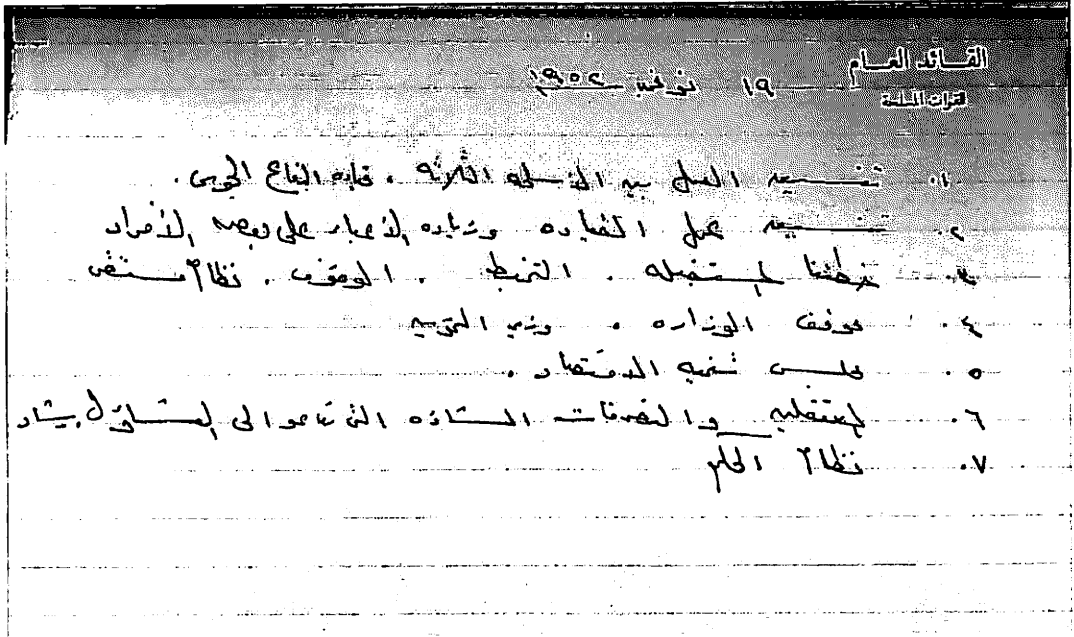 القائد العام
للقوات المسلحة
١٩ نوفمبر ١٩٥٢
١. تنسيق العمل بين الأسلحة الثلاثه . قيادة الدفاع الجوى .
٢. تنسيق عمل القياده وزياده الأعباء على بعض الأفراد
٣. خطتنا المستقبله . التخطيط . الموقف . نظام
٤. موقف الوزاره . وزير التموين
٥. مجلس تنميه الاقتصاد .
٦. المعتقلين والتصرفات الشاذه التى تدعو الى التساؤل
٧. نظام الحكم